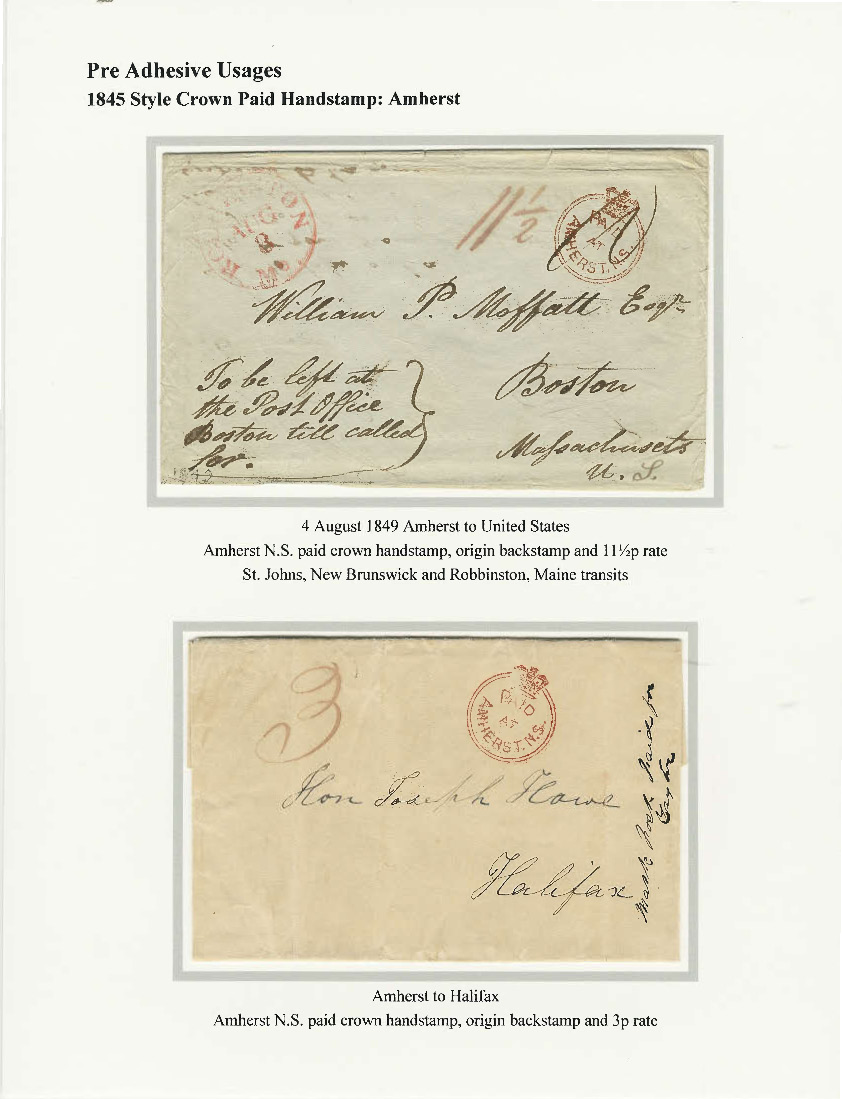 Pre Adhesive Usages
1845 Style Crown Paid Handstamp: Amherst
AUG.
11½
PAID
AT
AMHERST. N.S.
William P. Moffatt Esqr
To be left at
the Post Office
Boston till called
for.
Boston
Massachusets
U. S.
4 August 1849 Amherst to United States
Amherst N.S. paid crown handstamp, origin backstamp and 11½p rate
St. Johns, New Brunswick and Robbinston, Maine transits
3
PAID
AT
AMHERST. N.S.
Hon Joseph Howe
Halifax
paid for
Amherst to Halifax
Amherst N.S. paid crown handstamp, origin backstamp and 3p rate